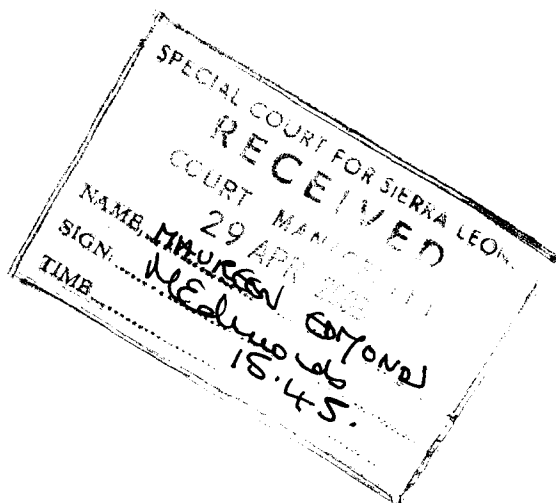 SPECIAL COURT FOR SIERRA LEON
RECEIVED
COURT
29 APR
NAME MAUREEN EDMONDS
SIGN MEdmonds
TIME 15.45.